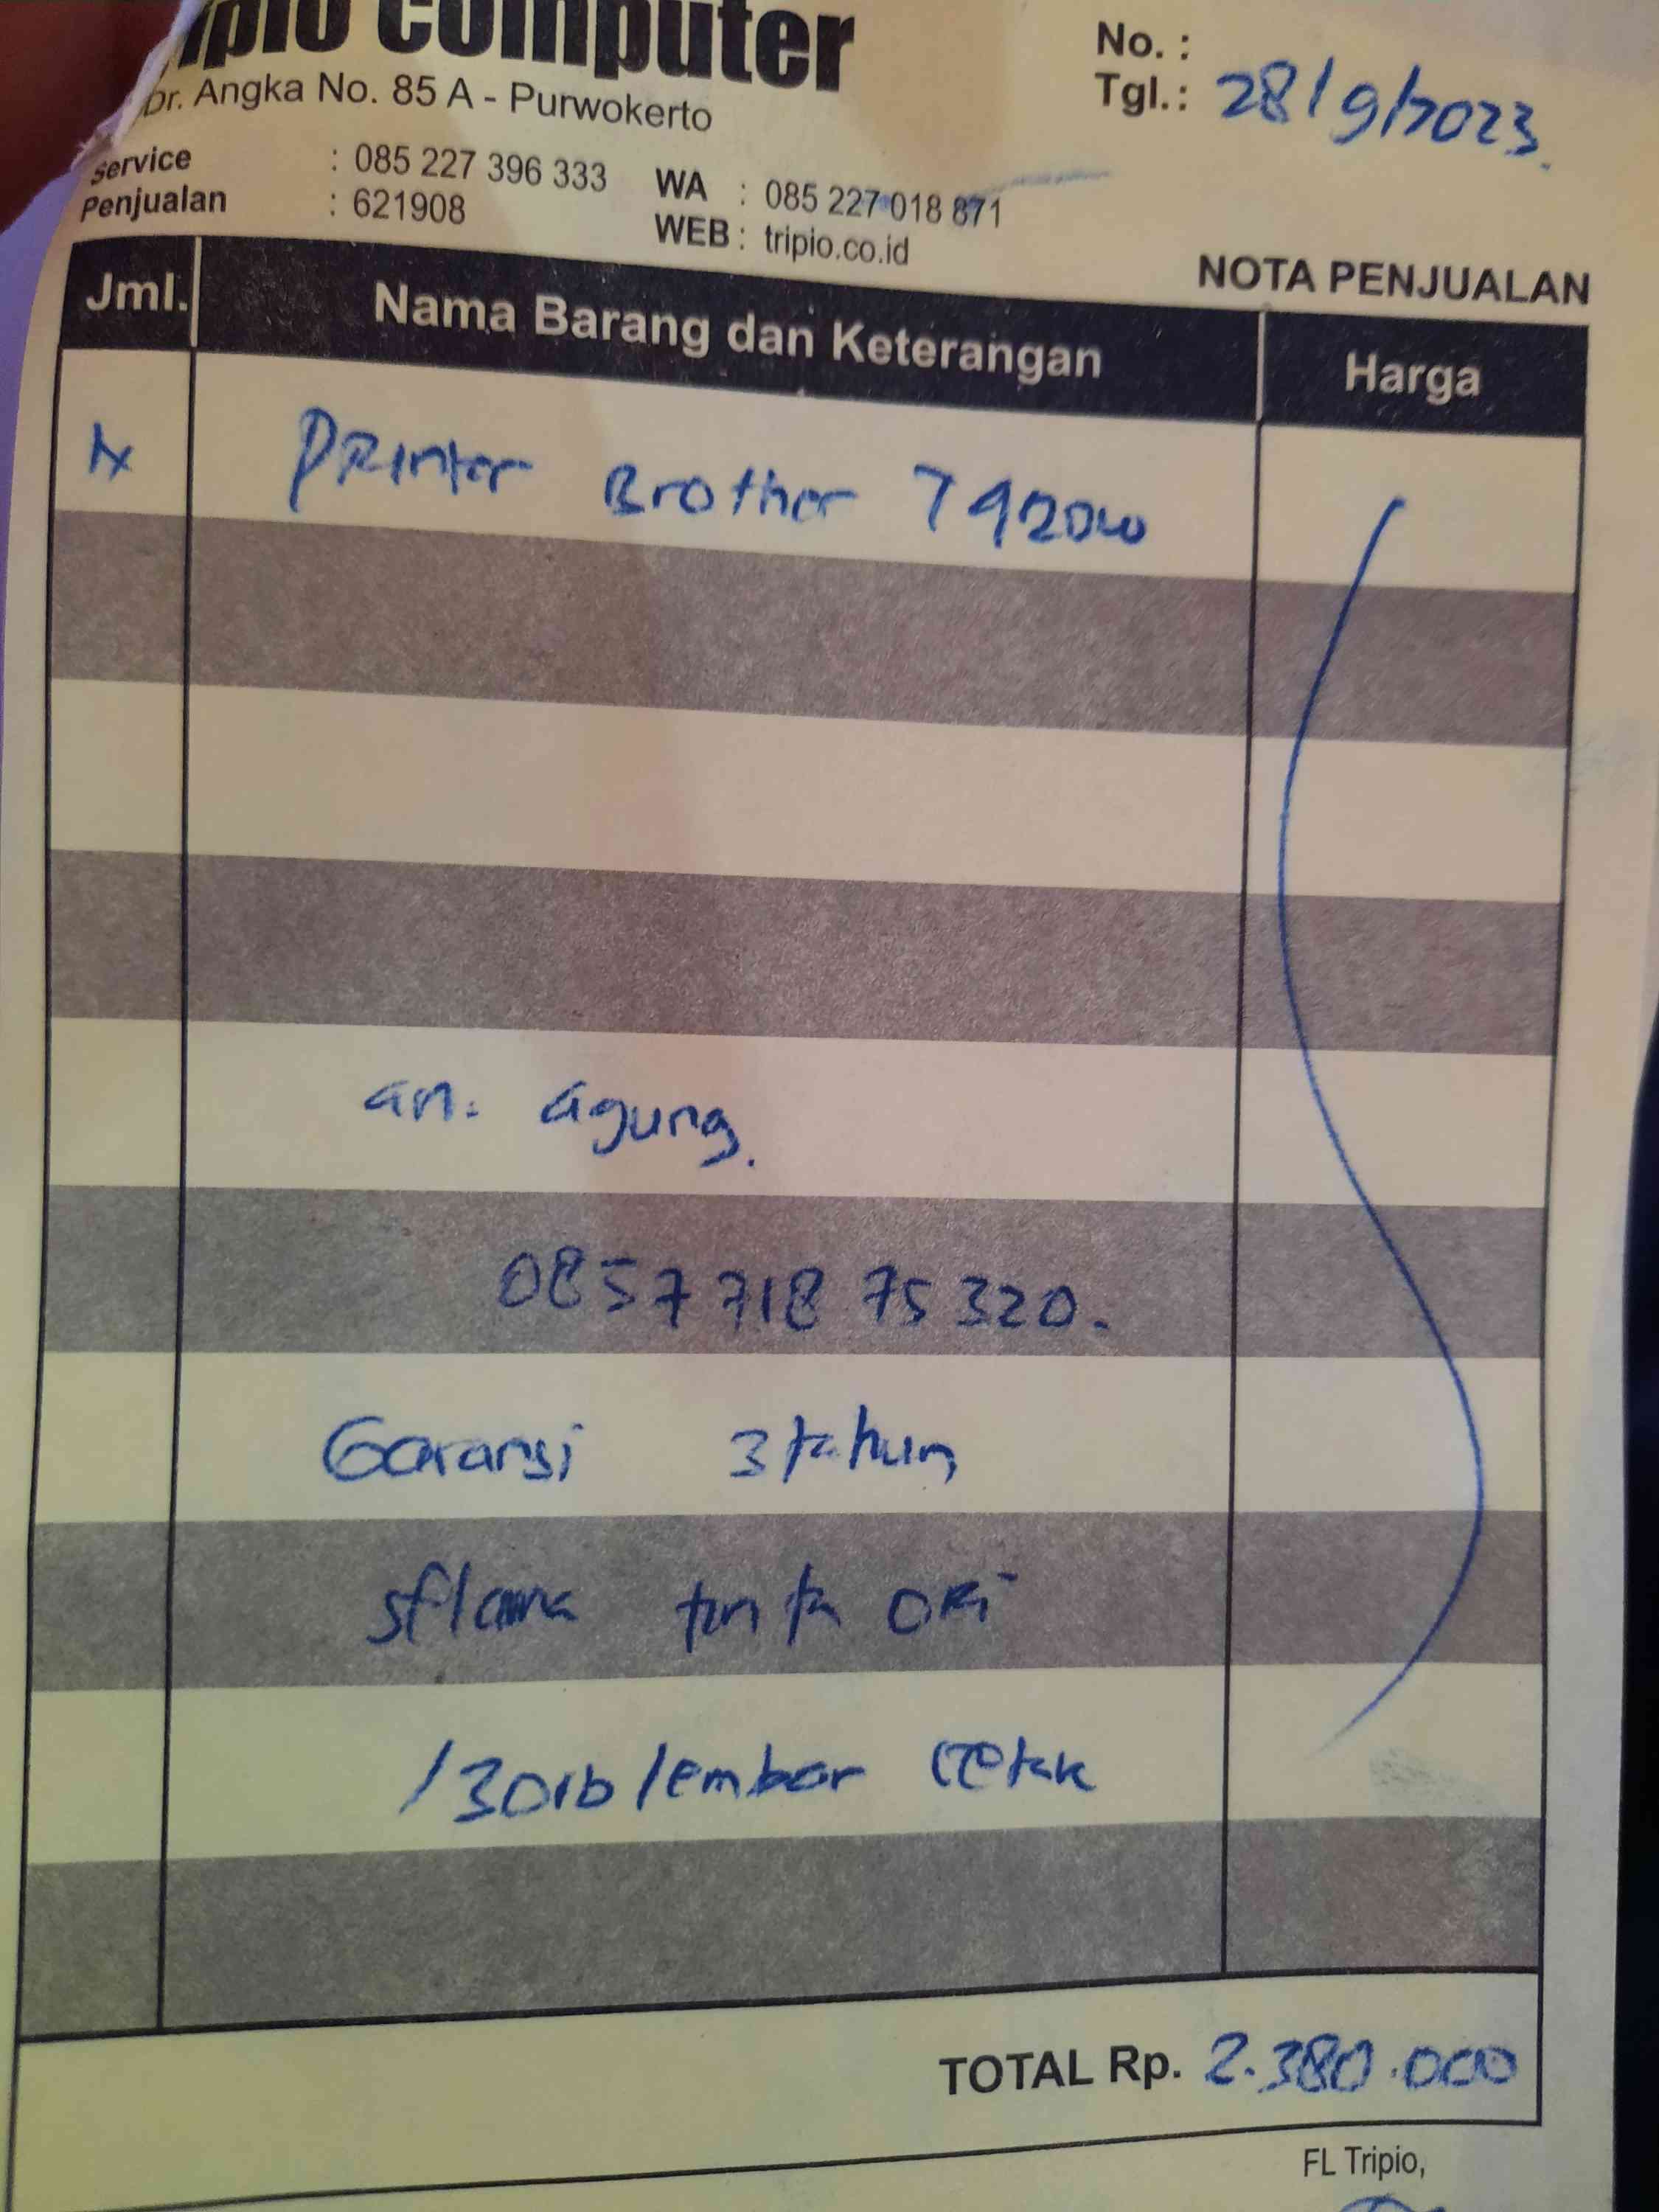 Tripio Computer
Dr. Angka No. 85 A - Purwokerto
No. :
Tgl. : 28/9/2023.
Service : 085 227 396 333
Penjualan : 621908
WA : 085 227 018 871
WEB : tripio.co.id
NOTA PENJUALAN
Jml. Nama Barang dan Keterangan Harga
1x Printer Brother T420w
an. agung.
0857 718 75 320.
Garansi 3 tahun
selama tinta ori
/30rb lembar cetak
TOTAL Rp. 2.380.000
FL Tripio,